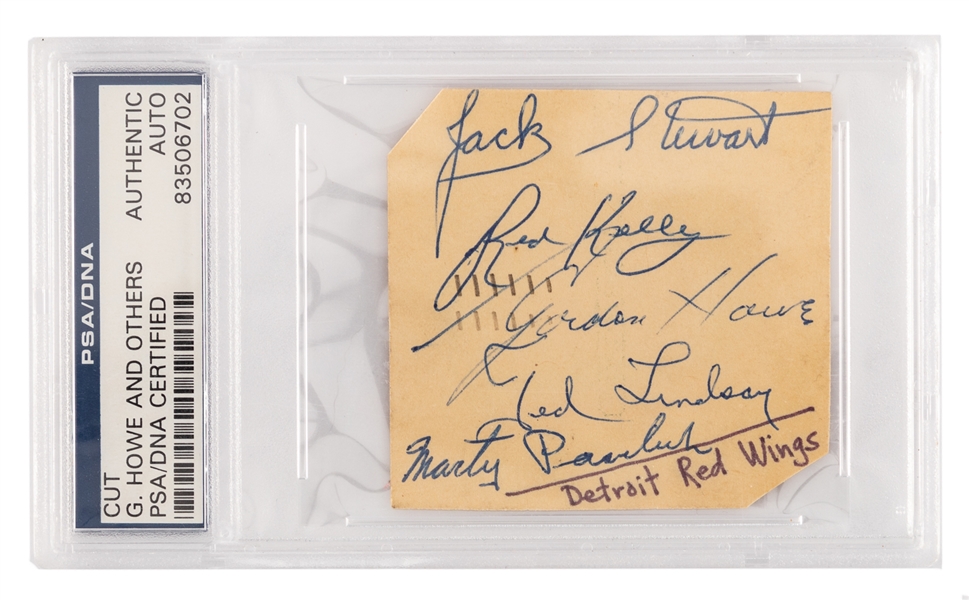 PSA/DNA
CUT
G. HOWE AND OTHERS
PSA/DNA CERTIFIED
AUTHENTIC
AUTO
83506702
Jack Stewart
Red Kelly
Gordon Howe
Ted Lindsay
Marty Pavelich
Detroit Red Wings